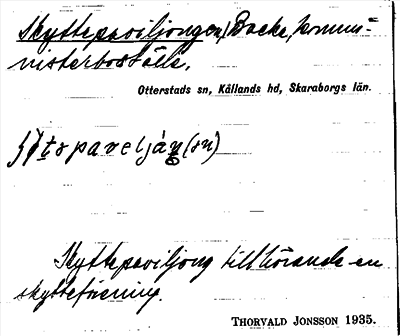 Skyttepaviljongen, Backe, kommi-
nisterboställe.
Otterstads sn, Kållands hd, Skaraborgs län.
Skyttepaviljong tillhörande en
skytteförening.
THORVALD JONSSON 1935.